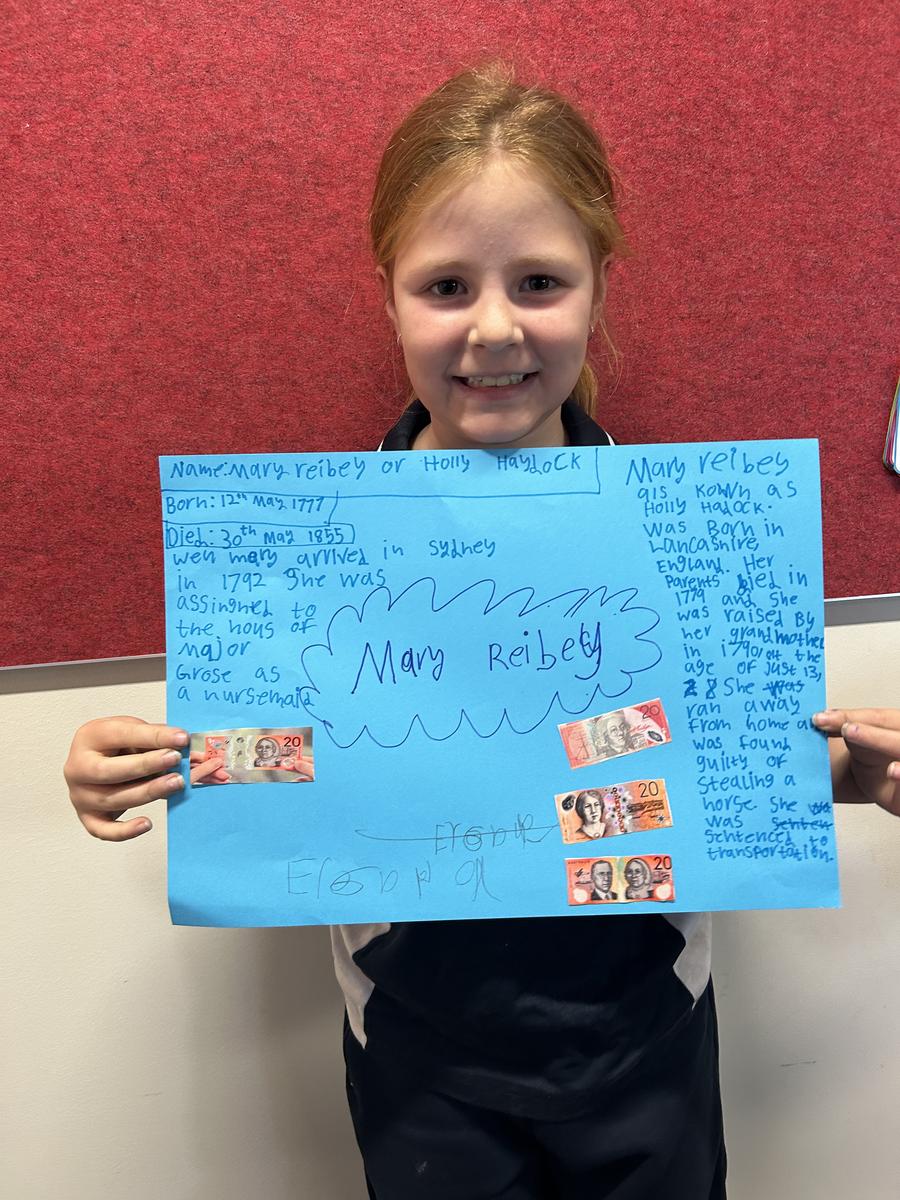 Name: Mary reibey or Holly HaydocK
Born: 12th May 1777
Died: 30th May 1855
wen mary arrived in sydney
in 1792 She was
assingned to
the hous of
major
Grose as
a nursemaid
Mary Reibey
Mary reibey
als Kown as
Holly Hadock.
was Born in
Lancashire,
England. Her
Parents died in
1779 and she
was raised By
her grandmother
in 1790/at the
age of Just 13,
She was
ran away
from home a
was found
guilty of
stealing a
horse. She
was senten
sentenced to
transportation.
20
20
20
20